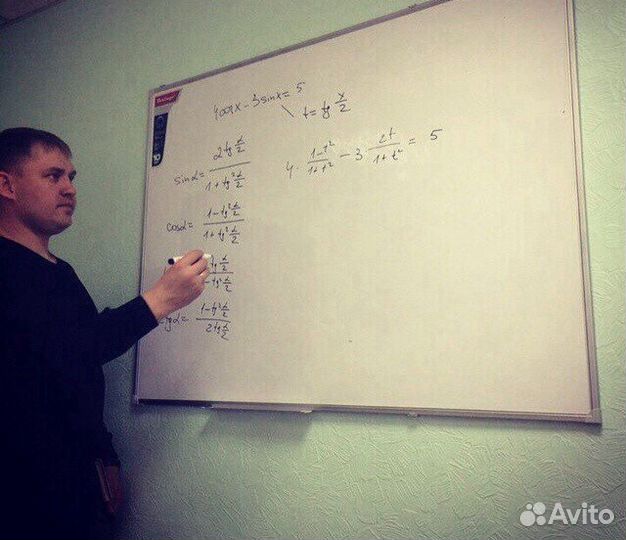 4cosx - 3sinx = 5
t = tg x/2
sinα = (2tg α/2)/(1 + tg² α/2)
4 · (1-t²)/(1+t²) - 3 · 2t/(1+t²) = 5
cosα = (1 - tg² α/2)/(1 + tg² α/2)
tg α/2
- tg² α/2
tgα = (1 - tg² α/2)/(2tg α/2)
Avito